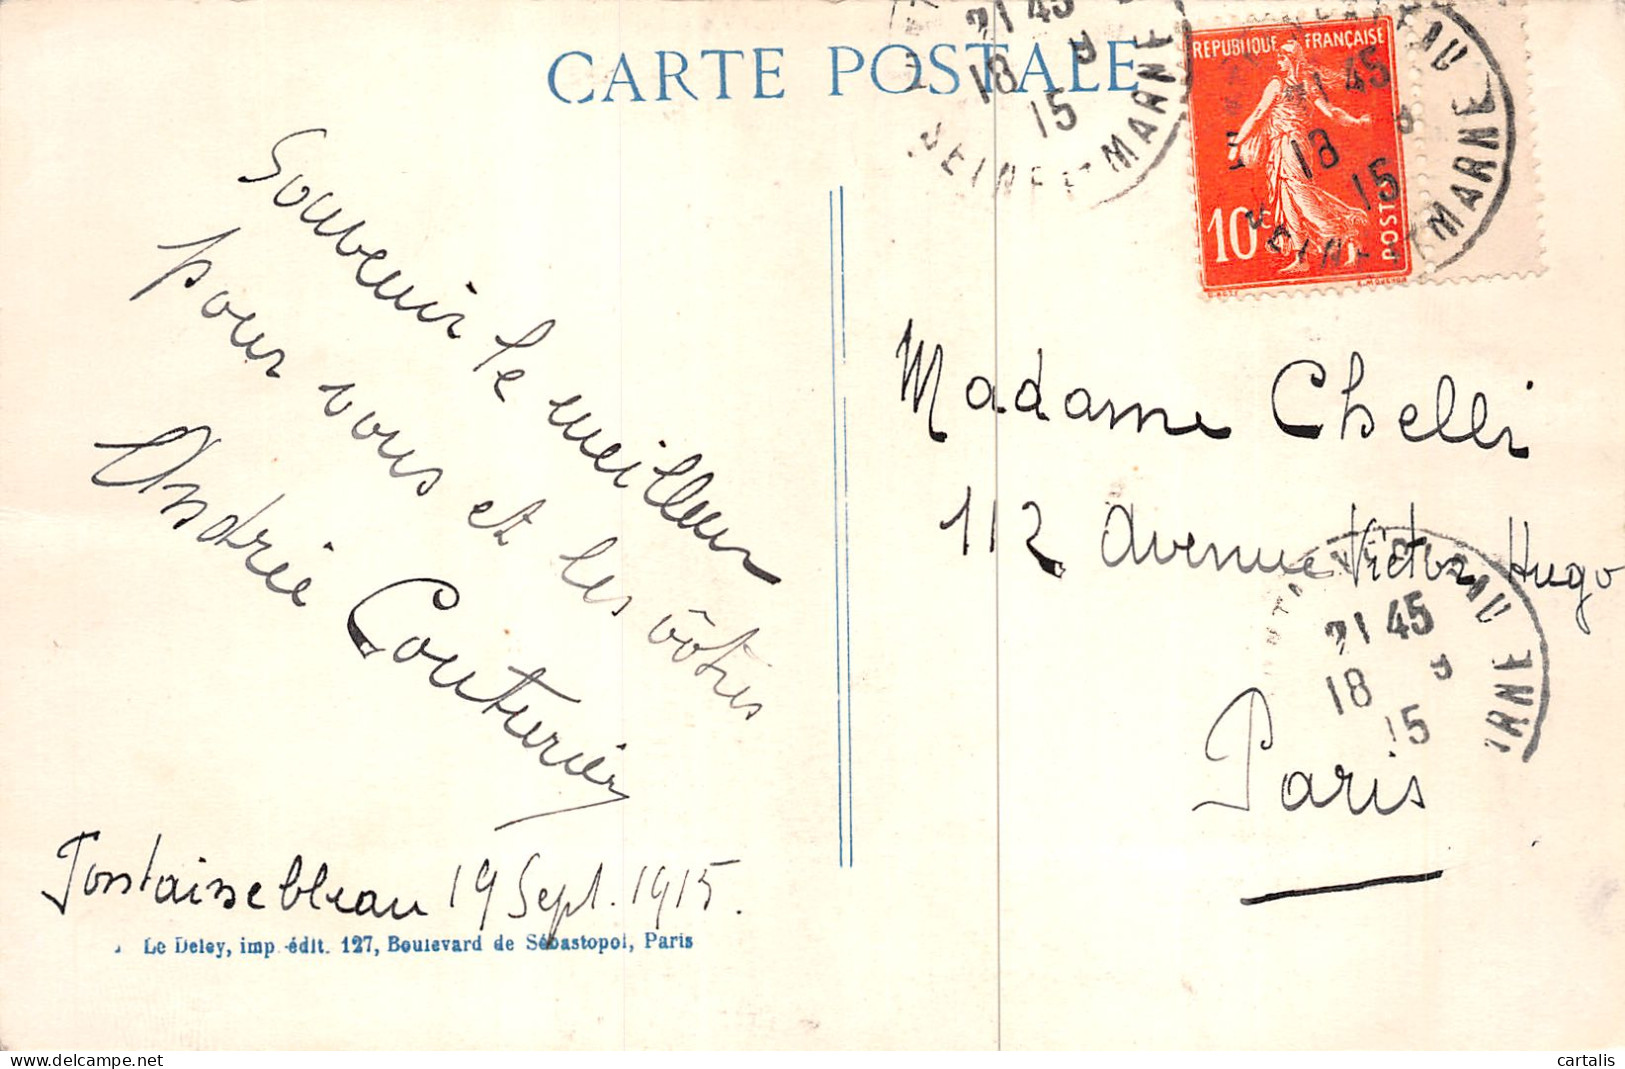 CARTE POSTALE
Souvenir le meilleur
pour vous et les vôtres
Andrée Couturier
Fontainebleau 19 Sept. 1915.
Le Deley, imp.-édit. 127, Boulevard de Sébastopol, Paris
21 45
18 9
15
SEINE ET MARNE
REPUBLIQUE FRANÇAISE
10c
POSTES
21 45
18 9
15
SEINE ET MARNE
Madame Chelli
112 Avenue Victor Hugo
Paris
FONTAINEBLEAU
21 45
18 9
15
cartalis